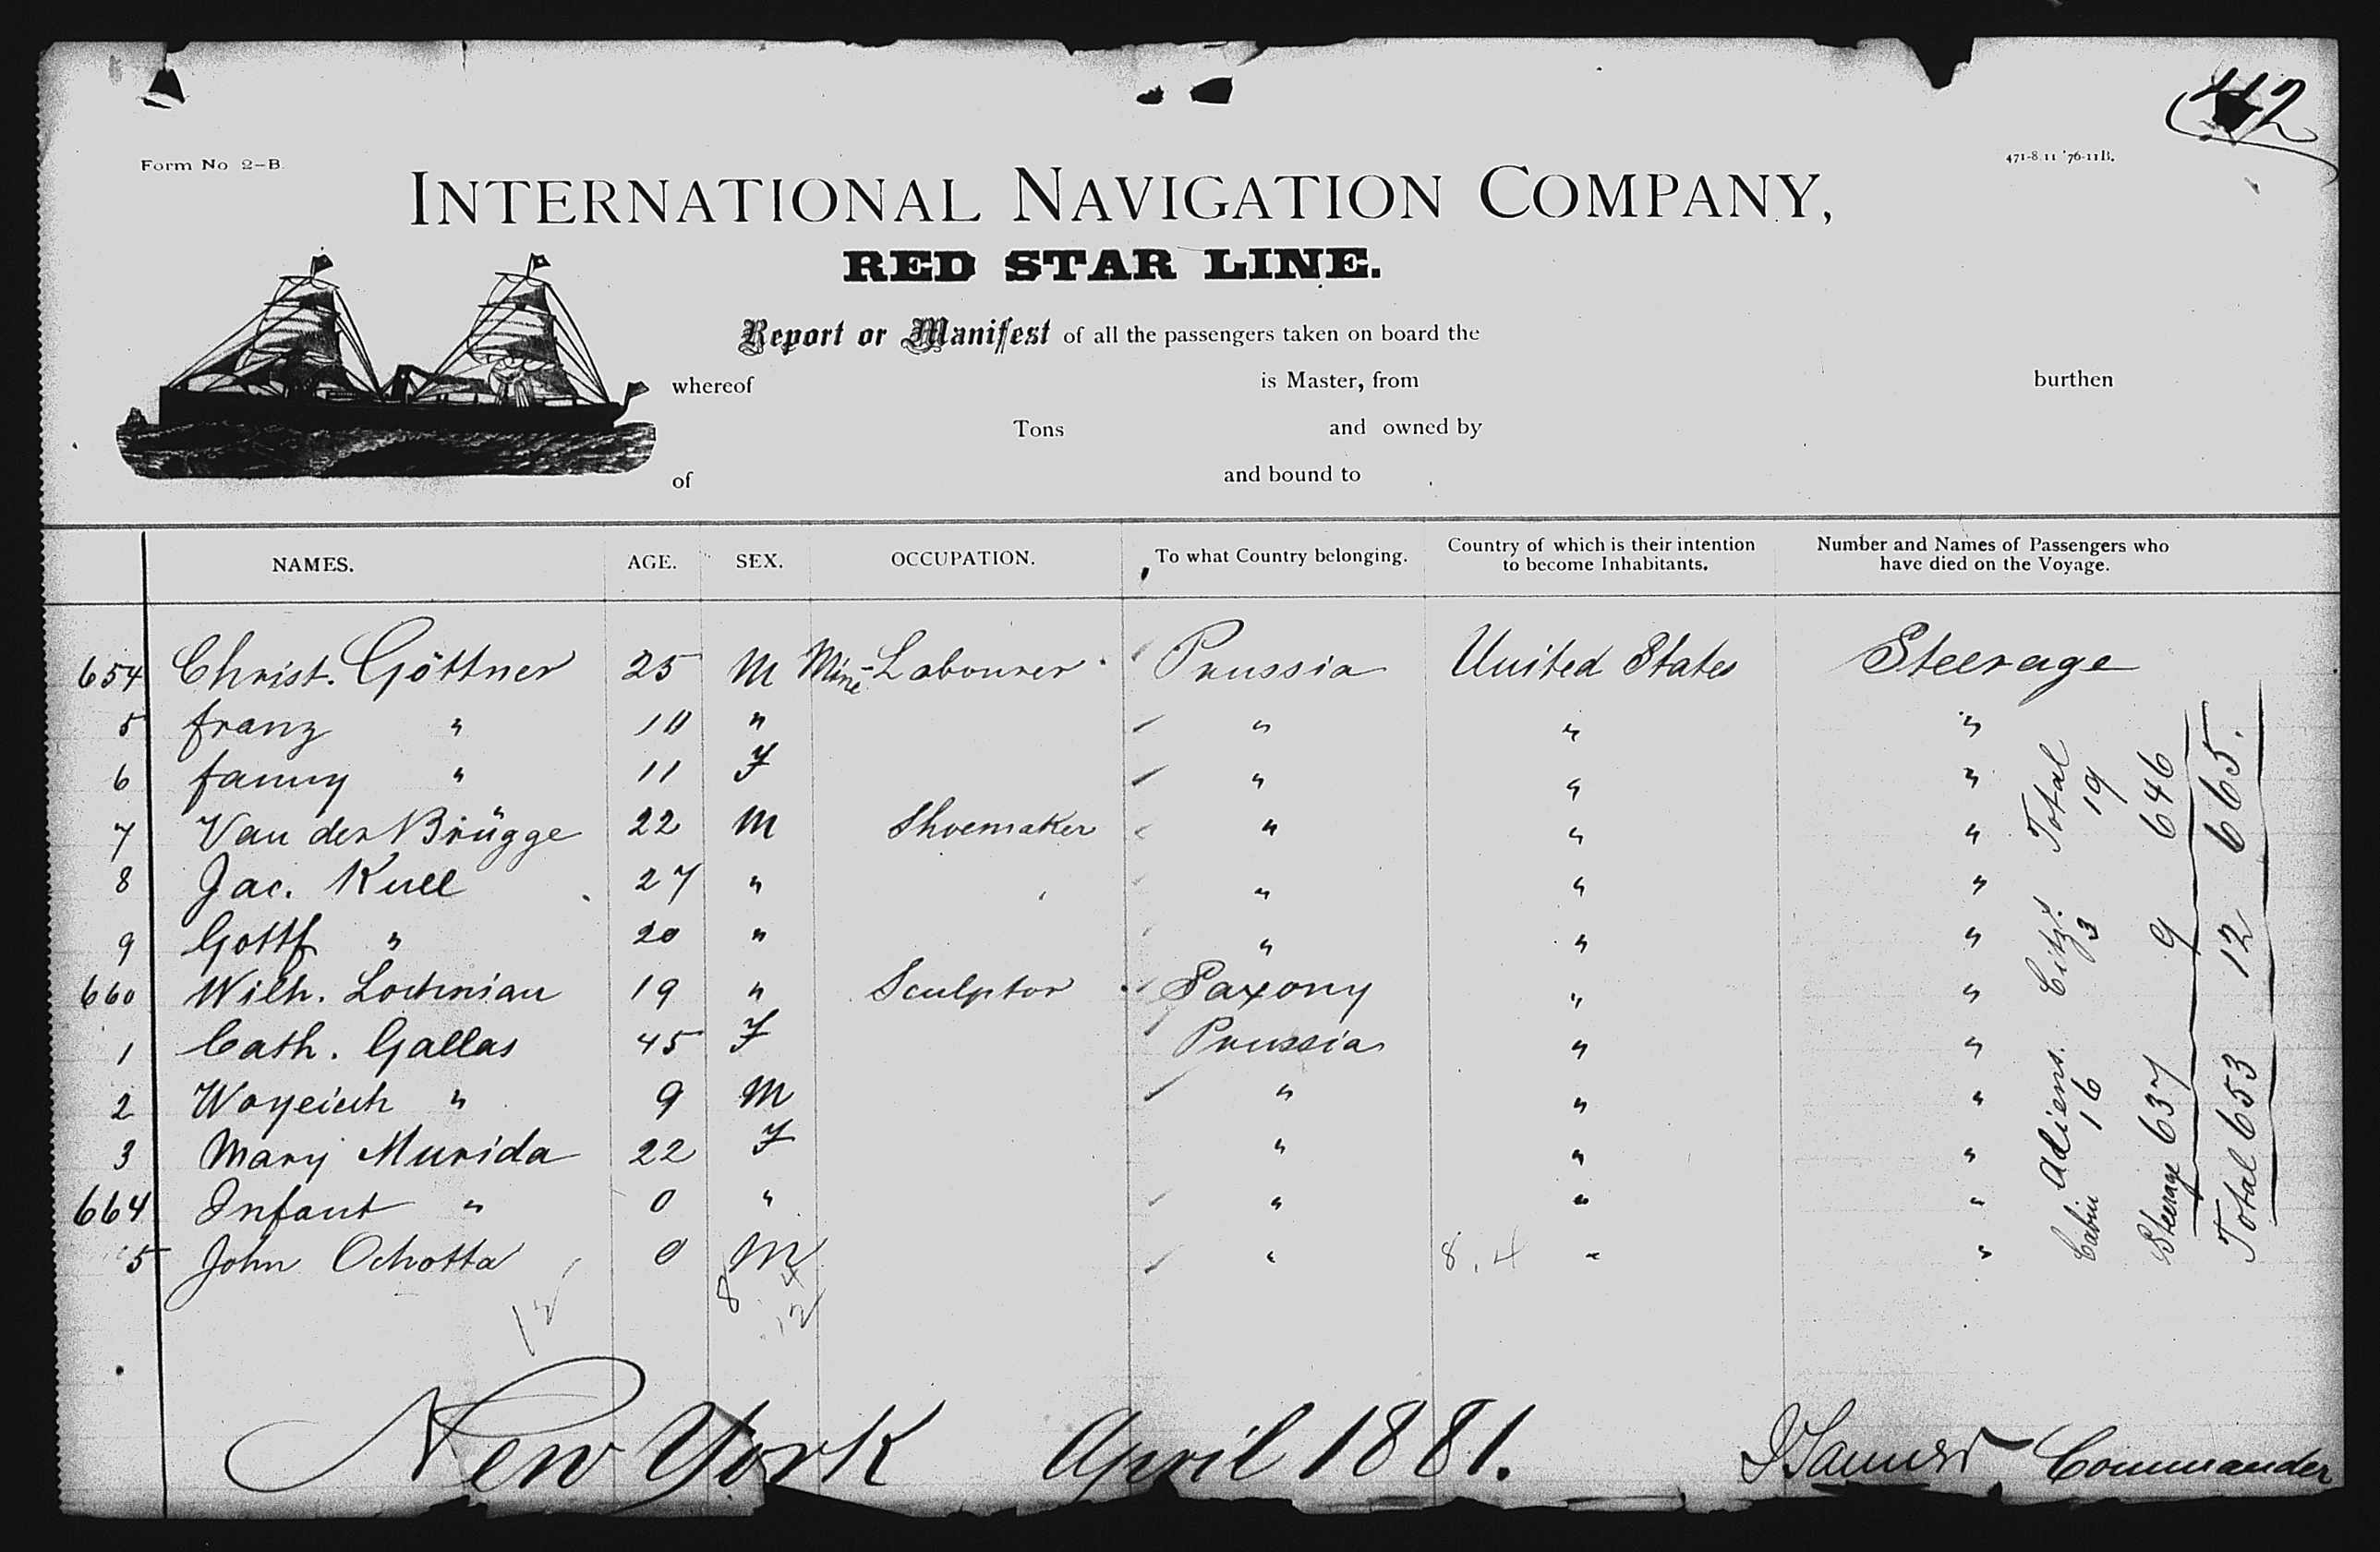 412
Form No 2-B.
471-8 11 '76-11B.
INTERNATIONAL NAVIGATION COMPANY,
RED STAR LINE.
Report or Manifest of all the passengers taken on board the
whereof is Master, from burthen
Tons and owned by
of and bound to
NAMES. AGE. SEX. OCCUPATION. To what Country belonging. Country of which is their intention to become Inhabitants. Number and Names of Passengers who have died on the Voyage.
654 Christ. Göttner 25 M Mine-Labourer Prussia United States Steerage
5 Franz " 10 " " " "
6 Fanny " 11 F " " "
7 Van der Brügge 22 M Shoemaker " " "
8 Jac. Kull 27 " " " "
9 Gottf " 20 " " " "
660 Wilh. 19 " Sculptor Saxony " "
1 Cath. Gallas 45 F Prussia " "
2 Woyeich " 9 M " " "
3 Mary Murida 22 F " " "
664 Infant " 0 " " " "
5 John Ochotta 0 M " 8.4 " "
12 8 4 12
Adiens. Citz. Total
Cabin 16 3 19
Steerage 637 9 646
Total 653 12 665.
New York April 1881. Commander